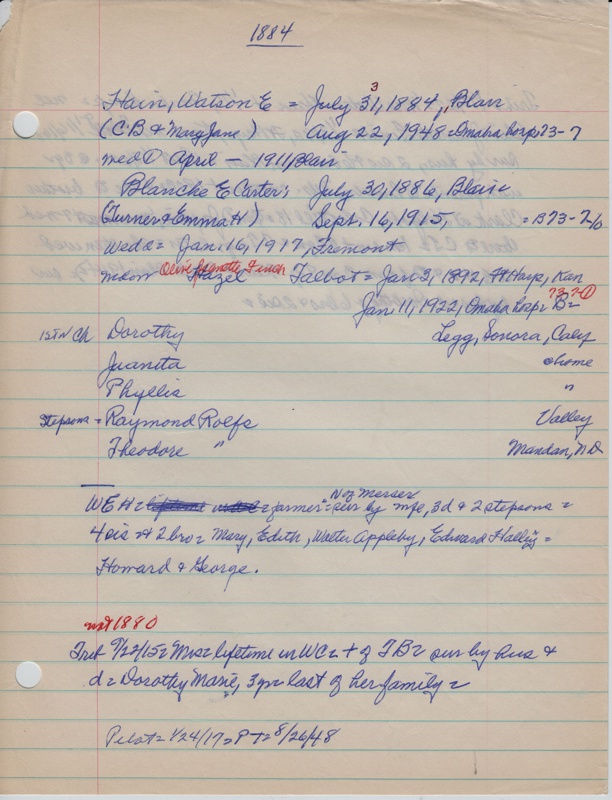 1884
Hain, Watson E = July 31, 1884, Blair
3
(C.B & Mary Jane) Aug 22, 1948 = Omaha hosp = 73-7
med ① April — 1911, Blair
Blanche E Carter = July 30, 1886, Blair =
(Turner & Emma H) Sept. 16, 1915, = B73-2/0
Wed 2 = Jan. 16, 1917, Fremont
Olive Jeanette Finch
Hazel Talbot = Jan 3, 1892, Ft Hays, Kan
73-7-①
Jan 11, 1922, Omaha hosp = B =
1st N Ch Dorothy Legg, Sonora, Calif
Juanita @ home
Phyllis "
Stepsons = Raymond Rolfs Valley
Theodore " Mandan, N.D.
N of
WEH = farmer = sur by wife, 3d & 2 stepsons =
4 sis & 2 bro = Mary, Edith, Walter Appleby, Edward Halley =
Howard & George.
not 1880
Trib 9/22/15 = Mrs = lifetime in WC = + of TB = sur by hus &
d = Dorothy Marie, 3 yr = last of her family =
Pilot = 1/24/17 = P T = 8/26/48